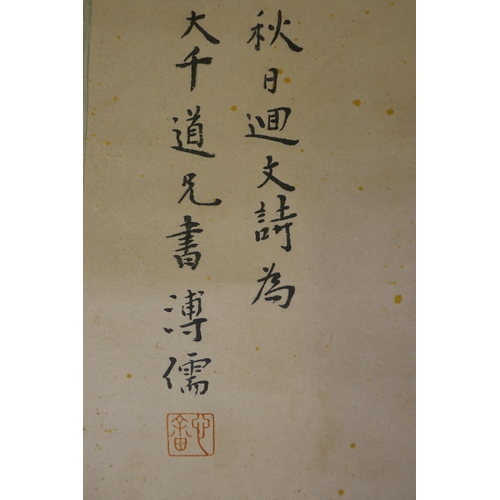 秋日迴文詩為
大千道兄書溥儒